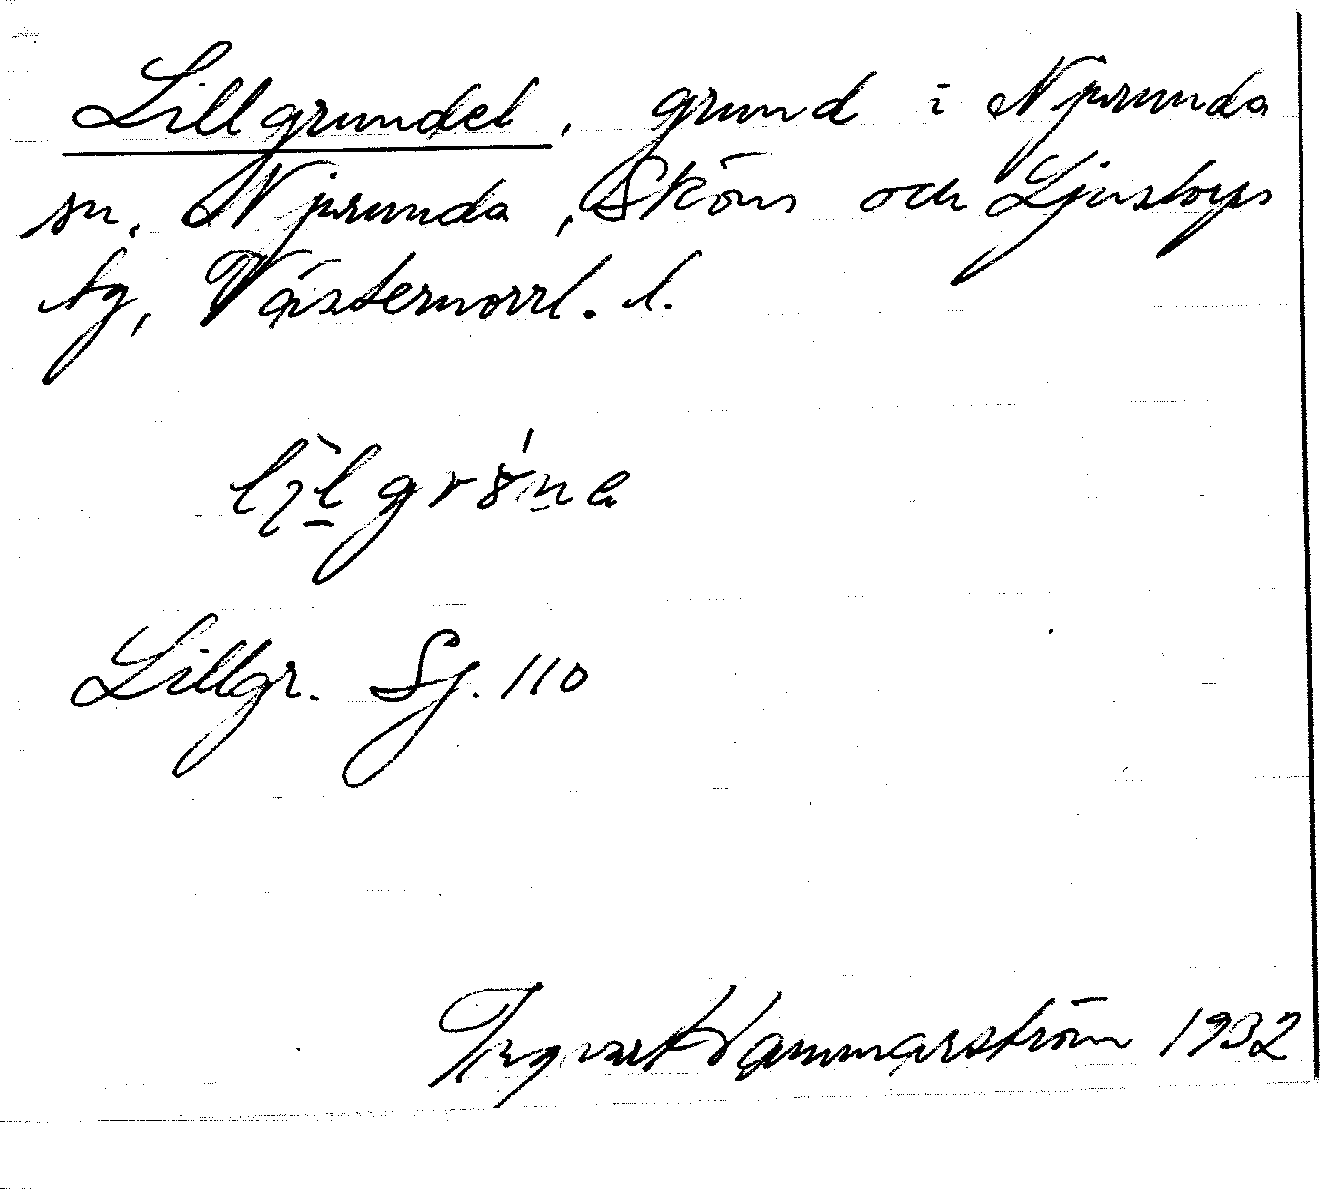 Lillgrundet, grund i Njurunda
sn. Njurunda, Sköns och Ljustorps
tg, Västernorrl. l.
Lillgr. Sj. 110
Ingvar Hammarström 1932